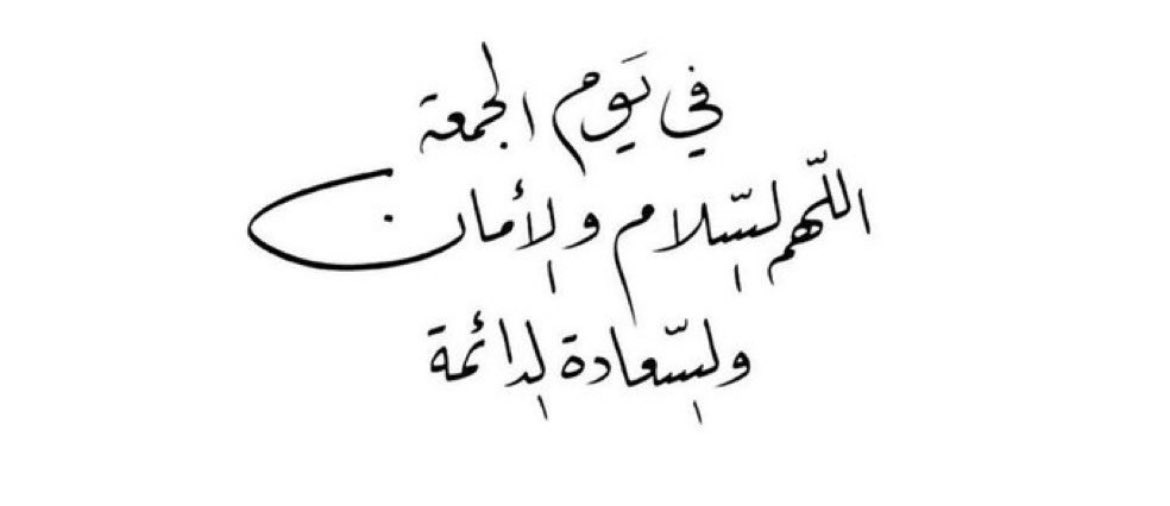 في يَوم الجمعة
اللّهم السّلام والأمان
والسّعادة الدائمة